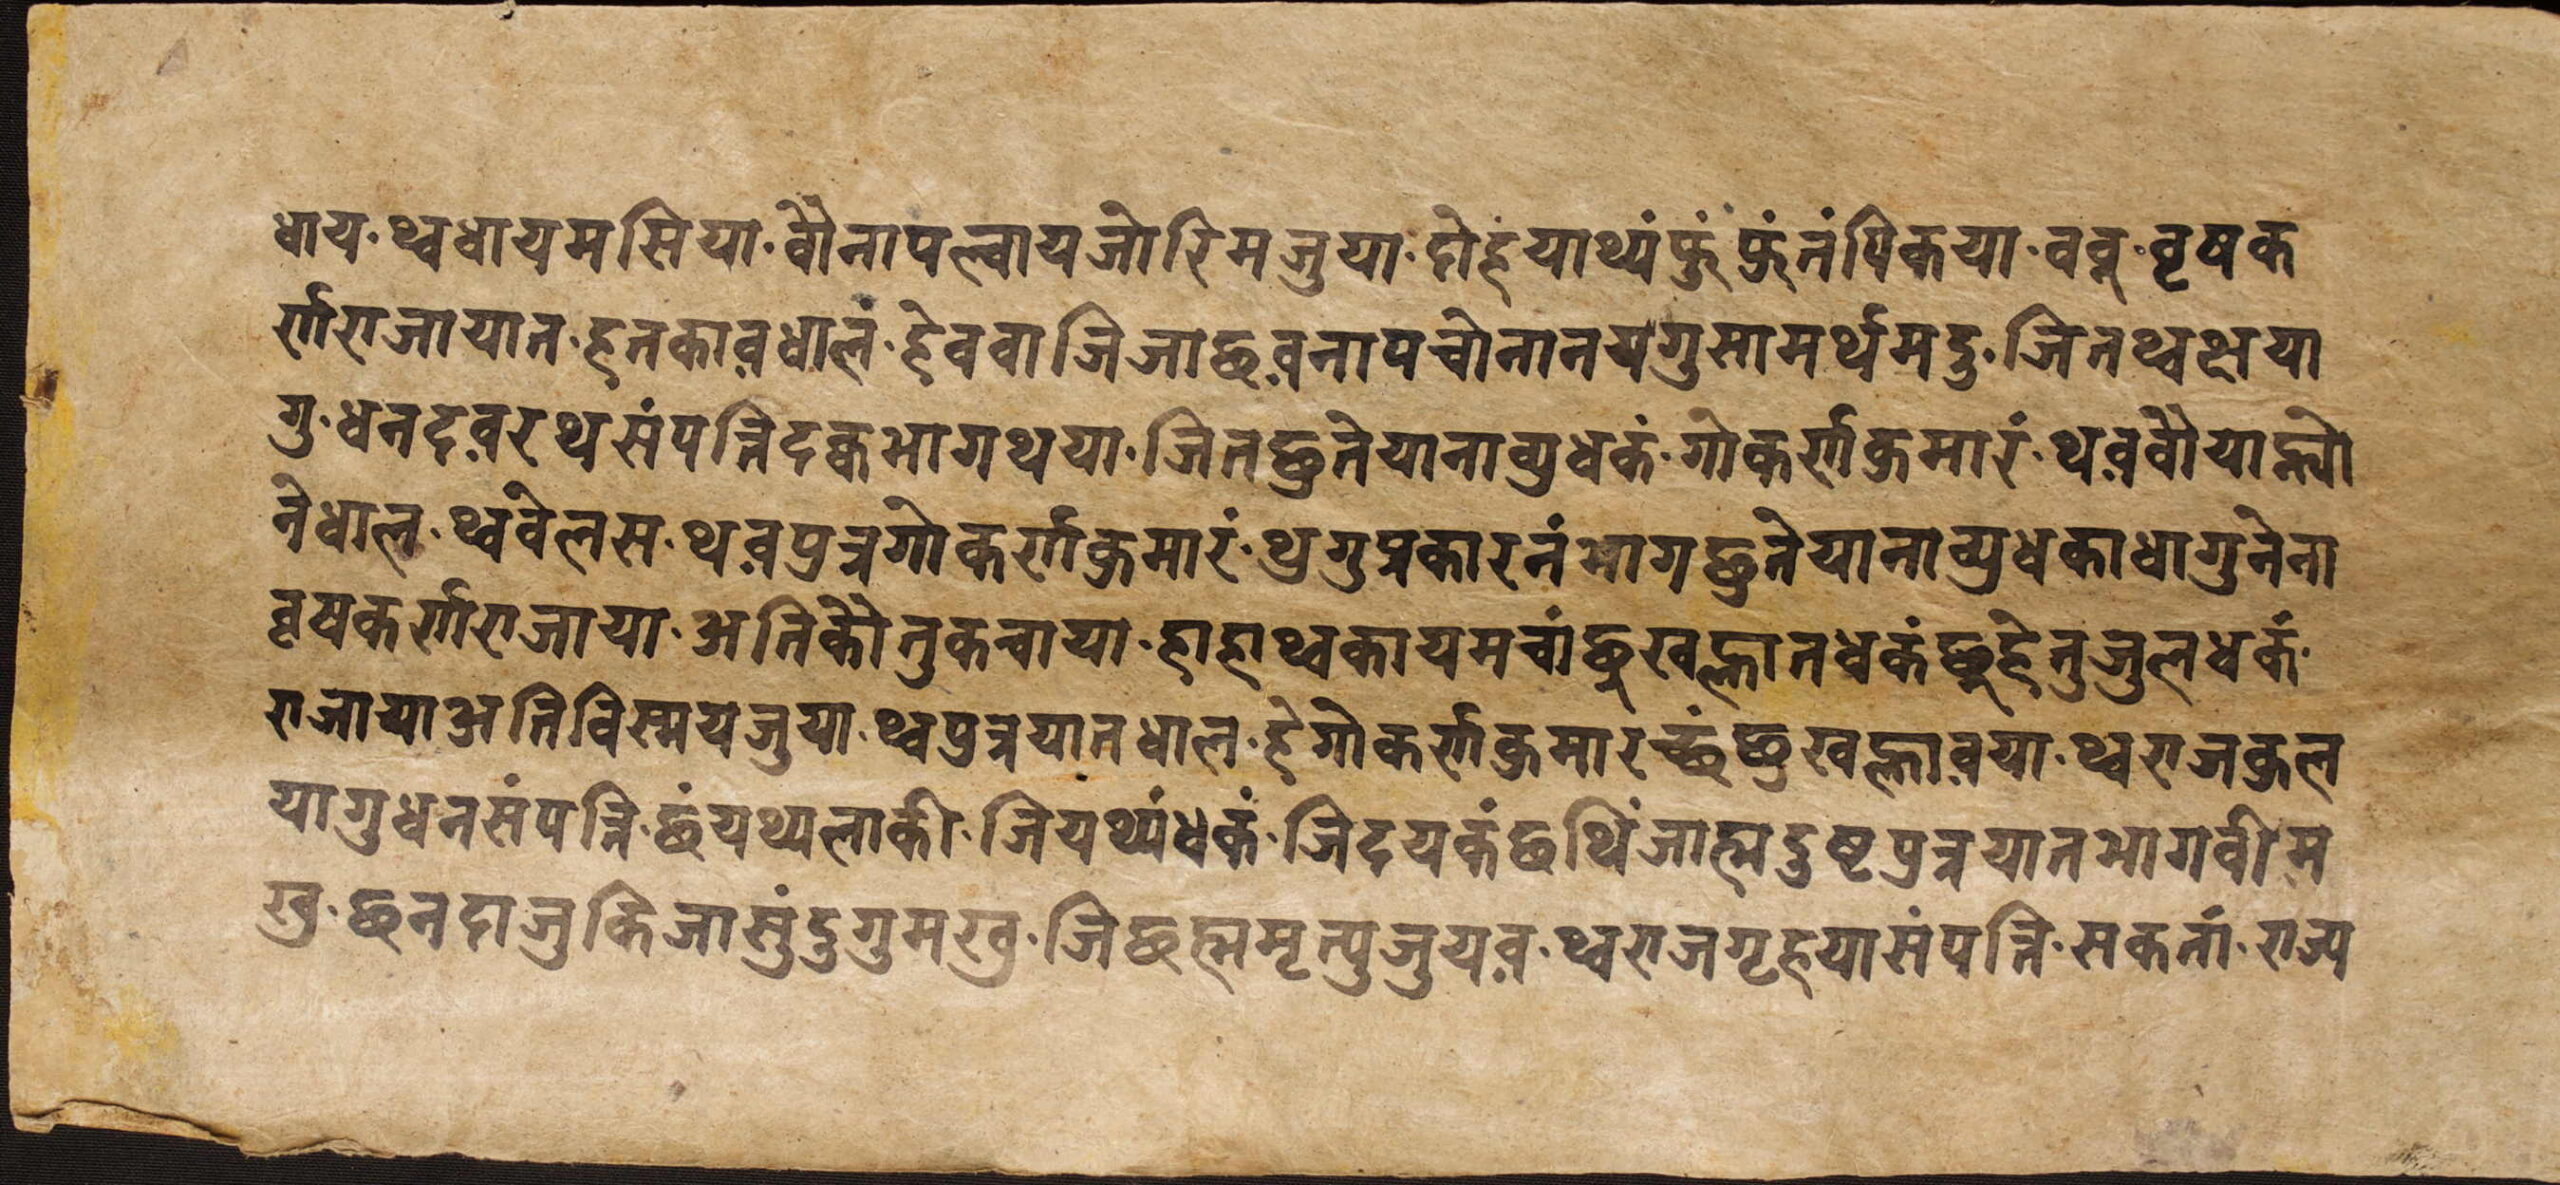 धाय· थ्वधायमसिया· बौनापल्वायजोरिमजुया· दोहंयाथ्यंफुंफुंनंपिकया· वन्न· वृषक
र्णराजायात· हनकाव़धालं· हेववाजिजाछव़नापचोनानयगुसामर्थमदु· जितथ्वक्षया
गु· धनदव़रथसंपत्तिदक्वभागथया· जितछुतेयानाव्युधकं· गोकर्णकुमारं· थव़वौयाह्लो
नेधाल· थ्ववेलस· थव़पुत्रगोकर्णकुमारं· थुगुप्रकारनंभागछुतेयानाव्युधकाधागुनेना
वृषकर्णराजाया· अतिकौतुकचाया· हाहाथ्वकायमचांछुखह्लातधकंछुहेतुजुलधकं·
राजायाअतिविस्मयजुया· थ्वपुत्रयातधाल· हेगोकर्णकुमारछंछुखह्लाव़या· थ्वराजकुल
यागुधनसंपत्ति· छंयथ्यलाकी· जियथ्यंधकं· जिदयकंछथिंजाह्मदुष्टपुत्रयातभागवीम
खु· छनदाजुकिजासुंदुगुमखु· जिछह्ममृत्युजुयव़· थ्वराजगृहयासंपत्ति· सकतां· राज्य